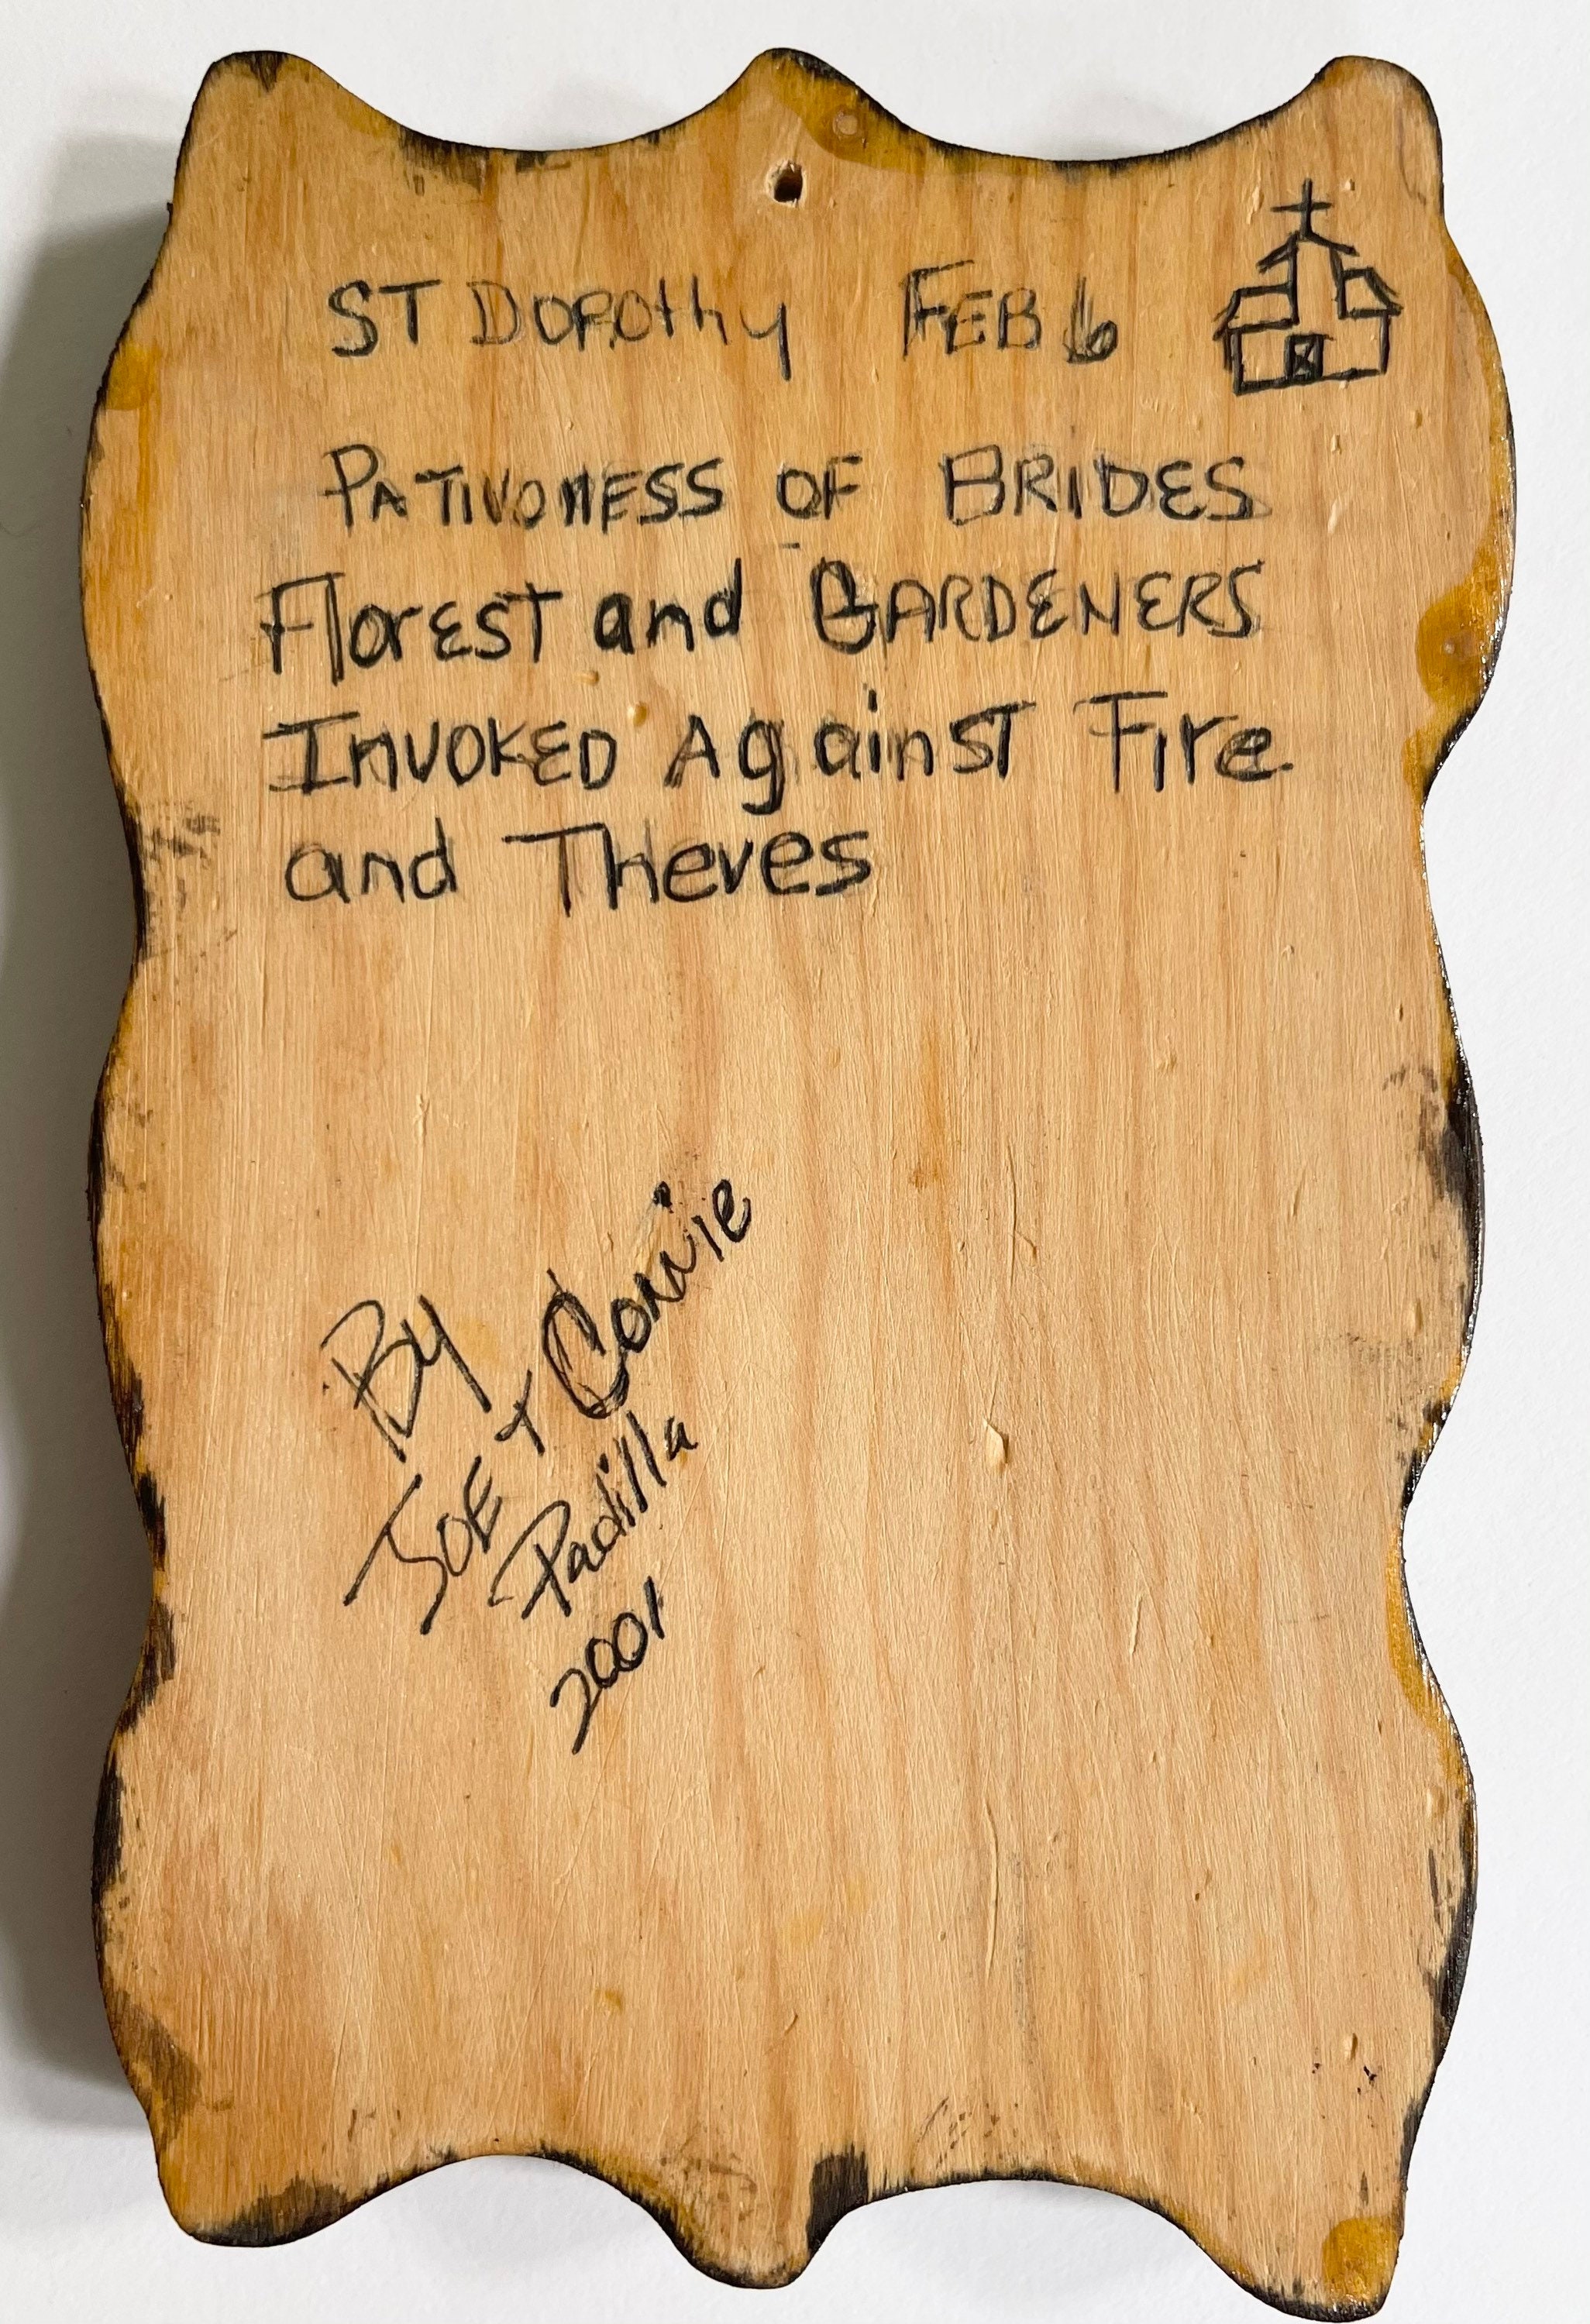 ST DOROthy FEB 6
PATIVONESS OF BRIDES
FlorEST and GARDENERS
INVOKED Against Fire
and Theves
By
JOE + Connie
Padilla
2001